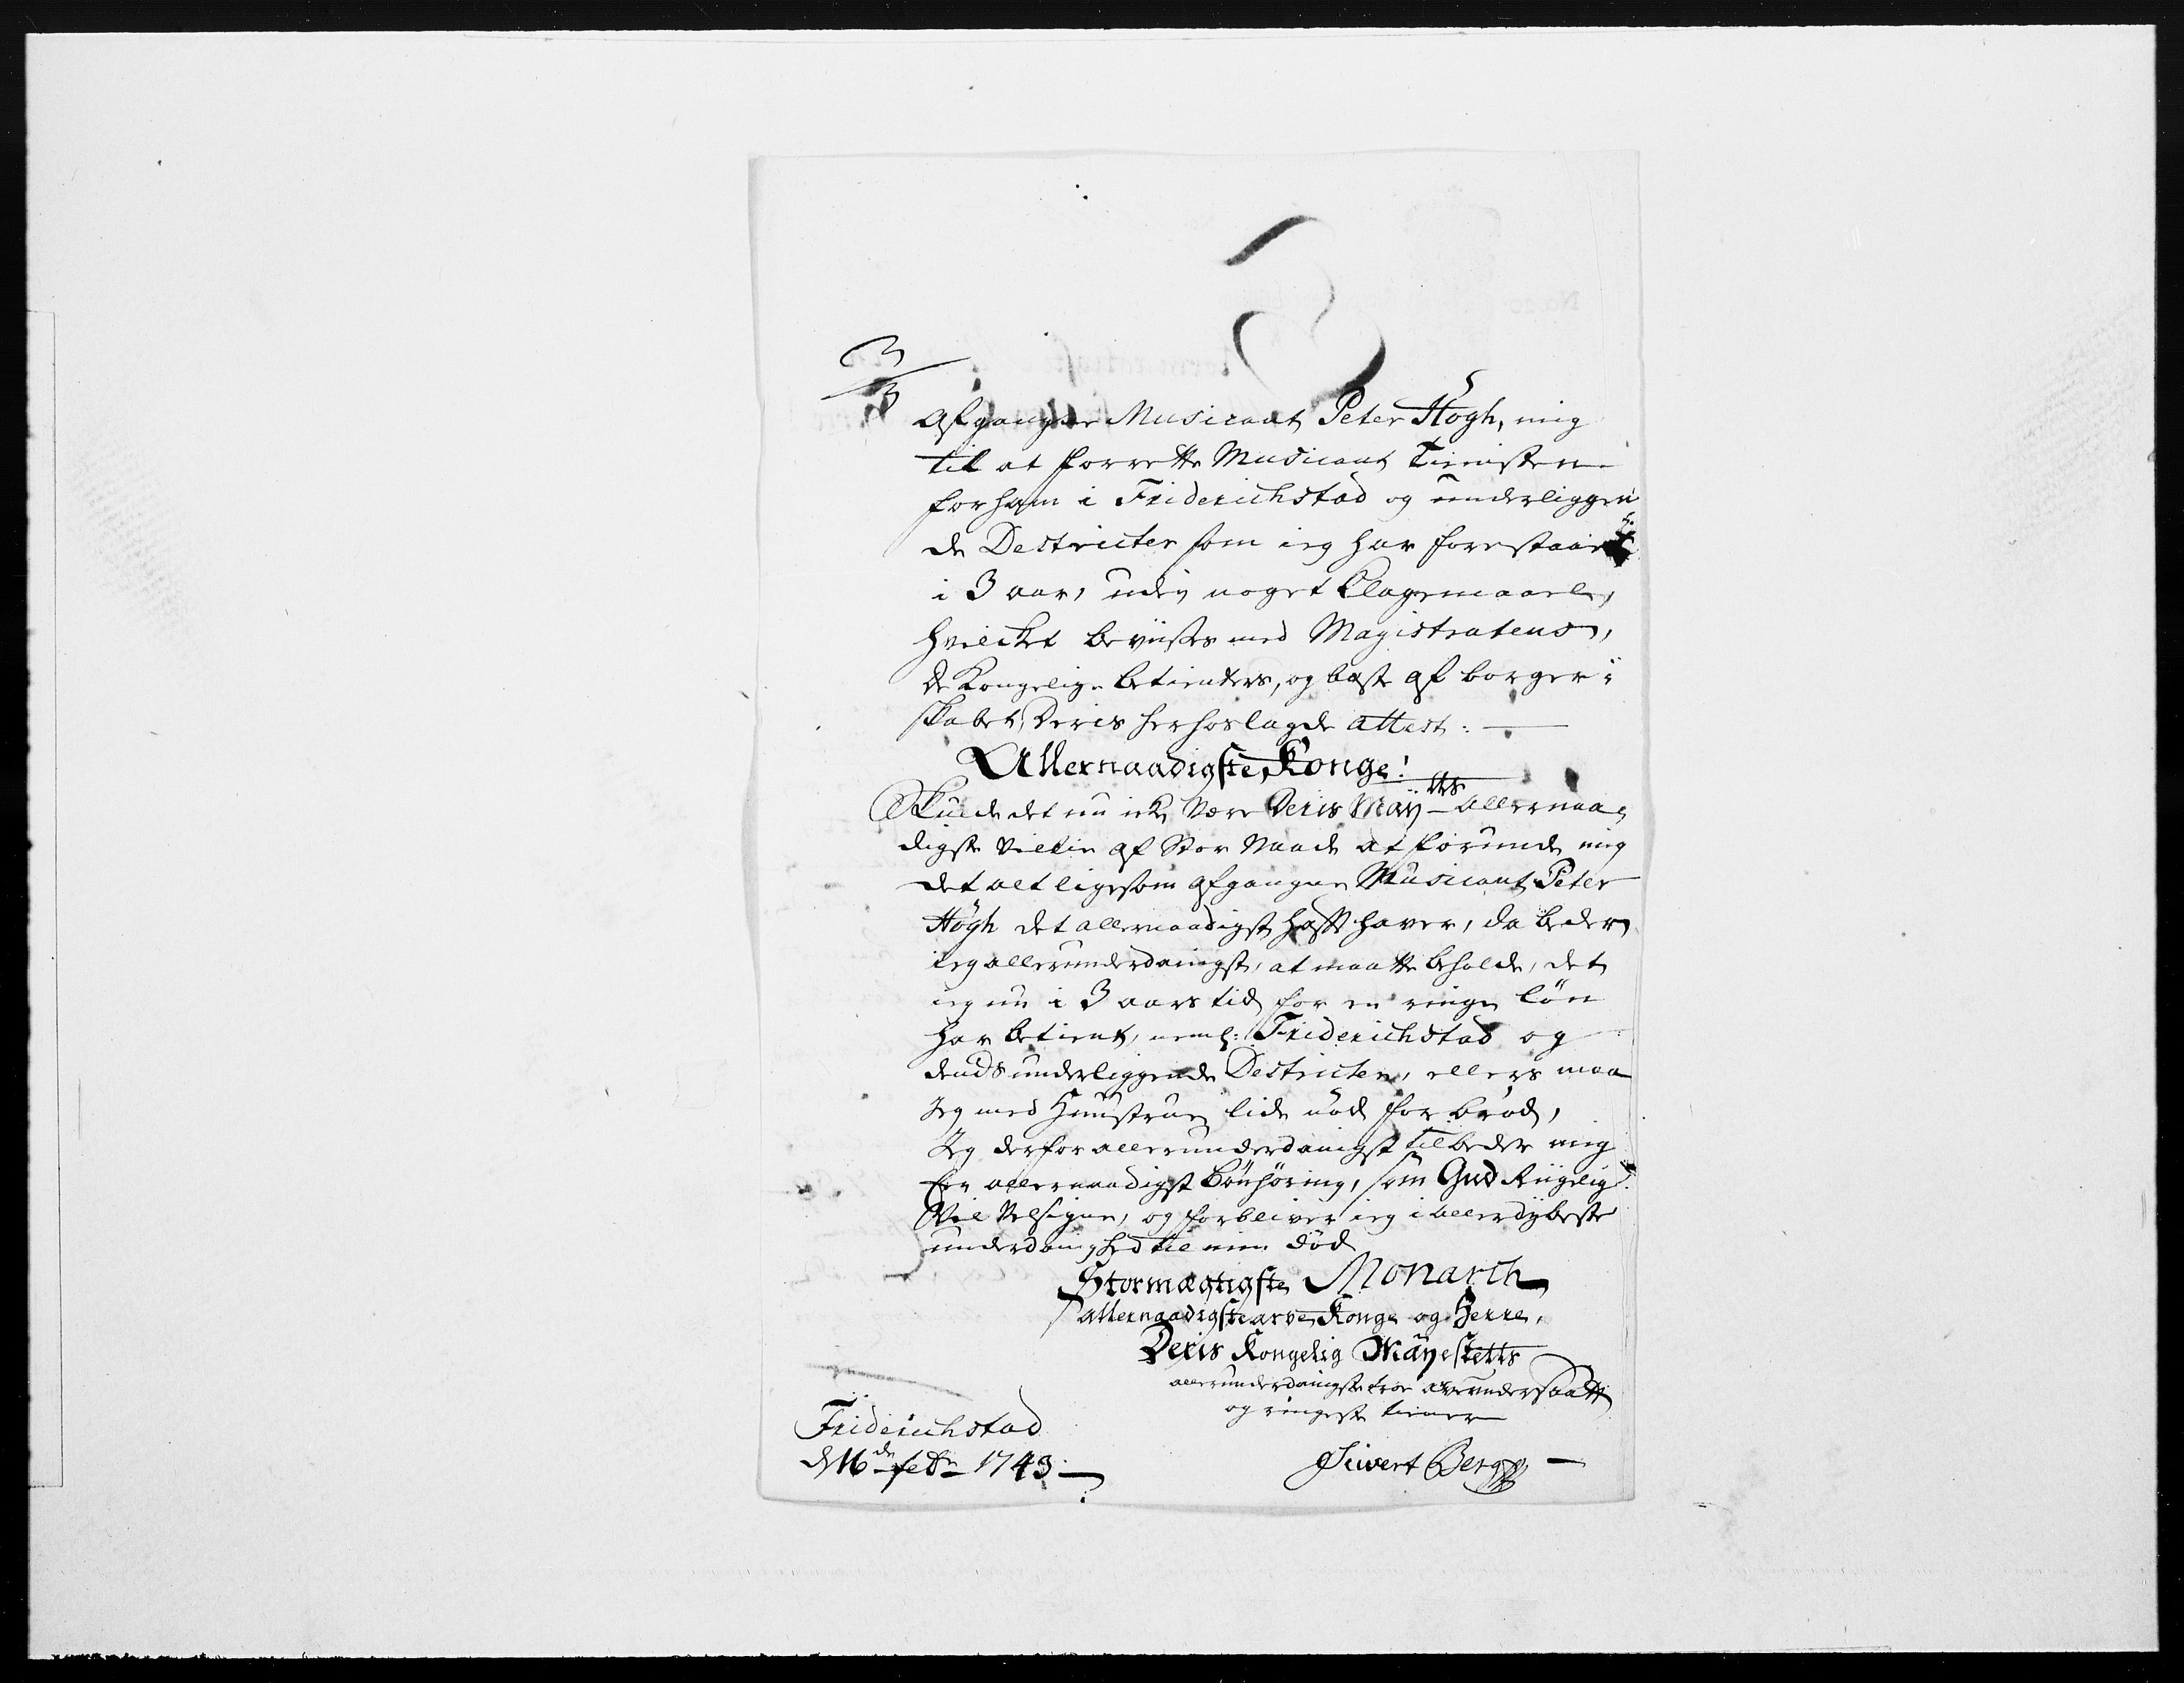 3
3
afgangne Musicant Peter Högh, mig
til at forrette Musicant Tienisten
for ham i Friderichstad og underliggen
de Destricter som ieg har forestaaet
i 3 aar, uden noget Klagemaal,
hvilchet beviises med Magistratens,
de Kongelige betienters, og beste af borger-
skabet, deris herhoslagde attest:
Allernaadigste Konge!
Skulde det nu icke være Deris Mayтts allernaa-
digste villie af Stor Naade at forunde mig
det alt ligesom afgangne Musicant Peter
Högh det allernaadigst hafft haver, da beder
ieg allerunderdanigst, at maatte beholde, det
ieg nu i 3 aars tid for en ringe Løn
har betient, neml: Friderichstad og
dends underliggende Destricter, ellers maa
Jeg med Huustrue lide nød for brød,
Jeg derfor allerunderdanigst tilbeder mig
En allernaadigst bönhöring, som Gud Riigelig
Vil Velsigne, og forbliver ieg i allerdybeste
underdanighed til min Död
Stormægtigste Monarch
allernaadigste arve Konge og Herre,
Deris Kongelig Mayestetts
allerunderdanigste troe arveundersaatt
og ringeste tiener
Friderichstad
d 16de febr 1743
Siwert Berg